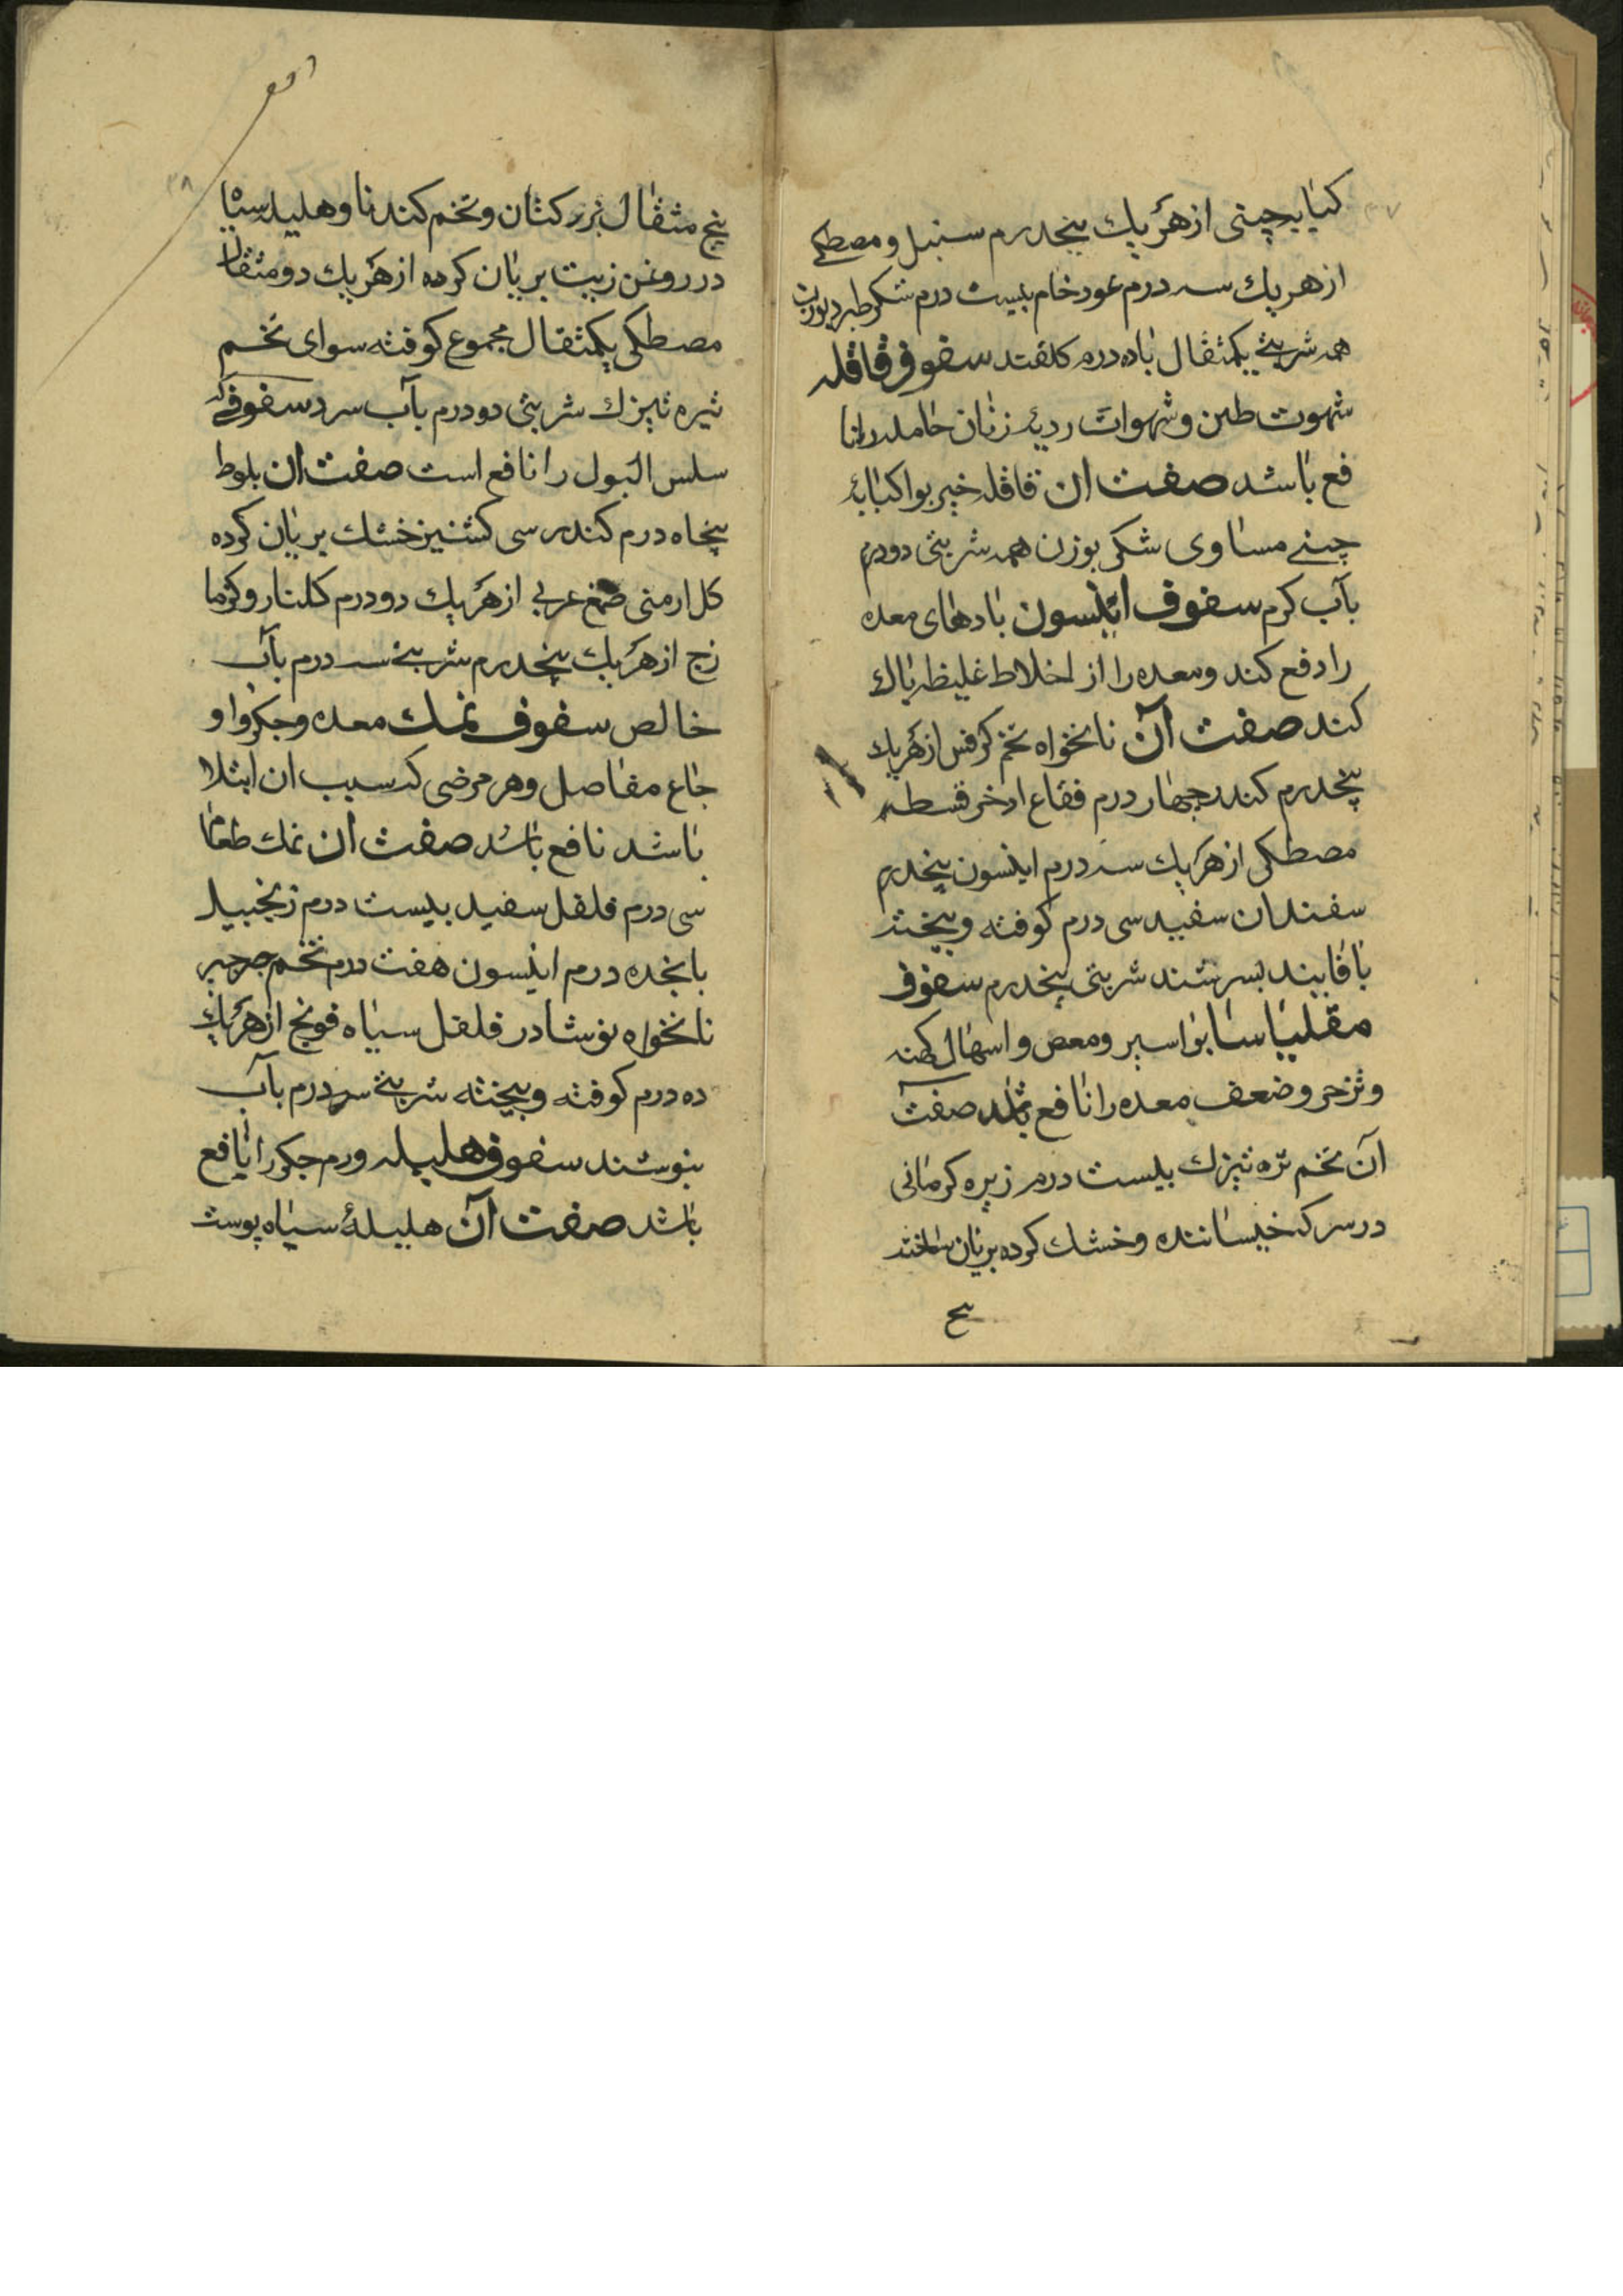 ۳۷
کبابه چینی از هر یك پنجدرم سنبل و مصطکی
از هر یك سه درم عود خام بیست درم شکر طبرد بوزن
همه شربتی یکمثقال با ده درم کلقند سفوف قاقله
شهوت طین و شهوات ردیهٔ زنان حامله را نا
فع باشد صفت ان قاقله خیر بوا کبابهٔ
چینی مساوی شکر بوزن همه شربتی دو درم
بآب کرم سفوف انیسون بادهای معده
را دفع کند و معده را از اخلاط غلیظ پاك
کند صفت آن نانخواه تخم کرفس از هر یك
پنجدرم کندر چهار درم فقاع اذخر قسط
مصطکی از هر یك سه درم انیسون پنجدرم
سفندان سفید سی درم کوفته و بیخته
با فانید بسرشند شربتی پنجدرم سفوف
مقلیاسا بواسیر و مغص و اسهال کهنه
و تزحر و ضعف معده را نافع باشد صفت
آن تخم تره تیزك بیست درم زیره کرمانی
در سرکه خیسانده و خشك کرده بریان ساخته
پنج
۳۸
پنج مثقال بزر کتان و تخم کندنا و هلیله سیاه
در روغن زیت بریان کرده از هر یك دو مثقال
مصطکی یکمثقال مجموع کوفته سوای تخم
تیره تیزك شربتی دو درم بآب سرد سفوفی که
سلس البول را نافع است صفت ان بلوط
پنجاه درم کندر سی کشنیز خشك بریان کرده
کل ارمنی صمغ عربی از هر یك دو درم کلنار و کزما
زج از هر یك پنجدرم شربتی سه درم بآب
خالص سفوف نمك معده و جکر و او
جاع مفاصل و هر مرضی که سبب ان ابتلا
باشد نافع باشد صفت ان نمك طعام
سی درم فلفل سفید بیست درم زنجبیل
پانجده درم انیسون هفت درم تخم جرجیر
نانخواه نوشادر فلفل سیاه فونج از هر یك
ده درم کوفته و بیخته شربتی سه درم بآب
بنوشند سفوف هلیله ورم جکر را نافع
باشد صفت آن هلیلهٔ سیاه پوست